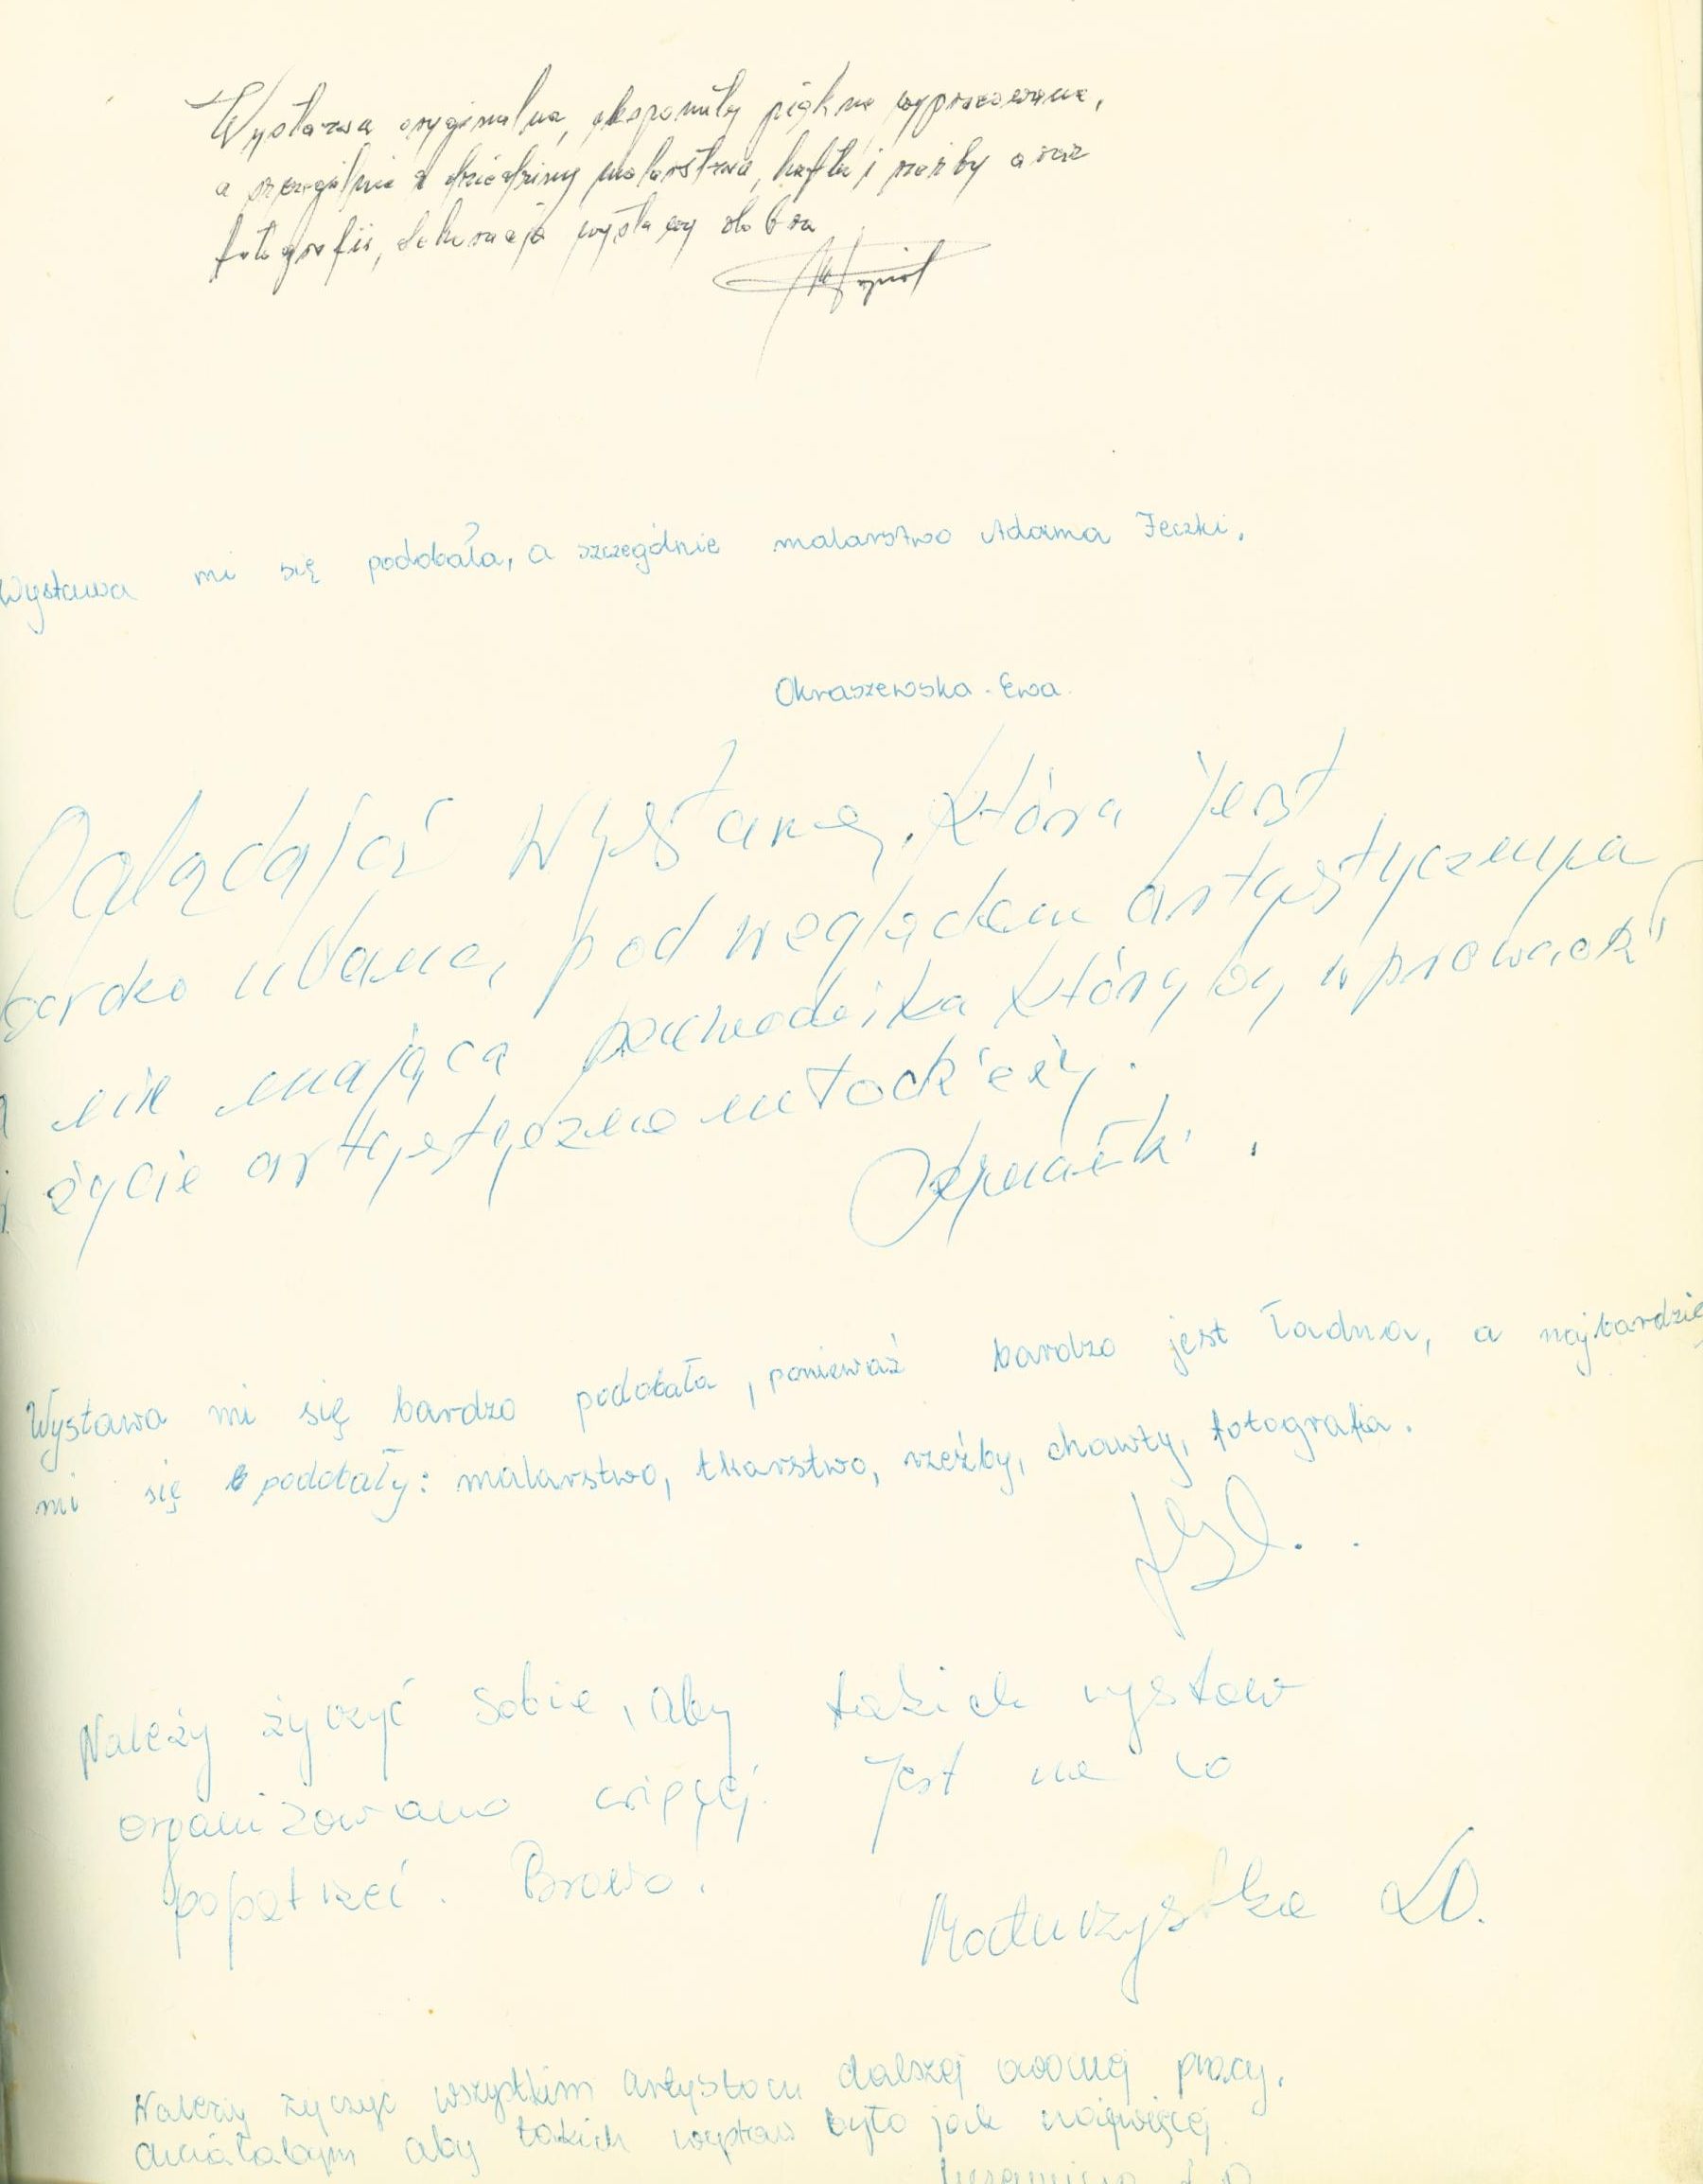 Wystawa oryginalna, eksponaty pięknie wypracowane,
a szczególnie z dziedziny malarstwa, haftu i rzeźby oraz
fotografii, dekoracja wystawy dobra
Wystawa mi się podobała, a szczególnie malarstwo Adama Jeczki.
Okraszewska Ewa.
Oglądając wystawę, która jest
bardzo udana, pod względem artystycznym
nie mająca któryby wprowadził
życie artystyczne młodzieży.
Wystawa mi się bardzo podobała, ponieważ bardzo jest ładna, a najbardzie
mi się podobały: malarstwo, tkarstwo, rzeźby, chawty, fotografia.
Należy życzyć sobie, aby takich wystaw
organizowano więcej. Jest na co
popatrzeć. Brawo.
Maturzystka LO.
Należy życzyć wszystkim artystom dalszej owocnej pracy.
chciałabym aby takich wystaw było jak najwięcej